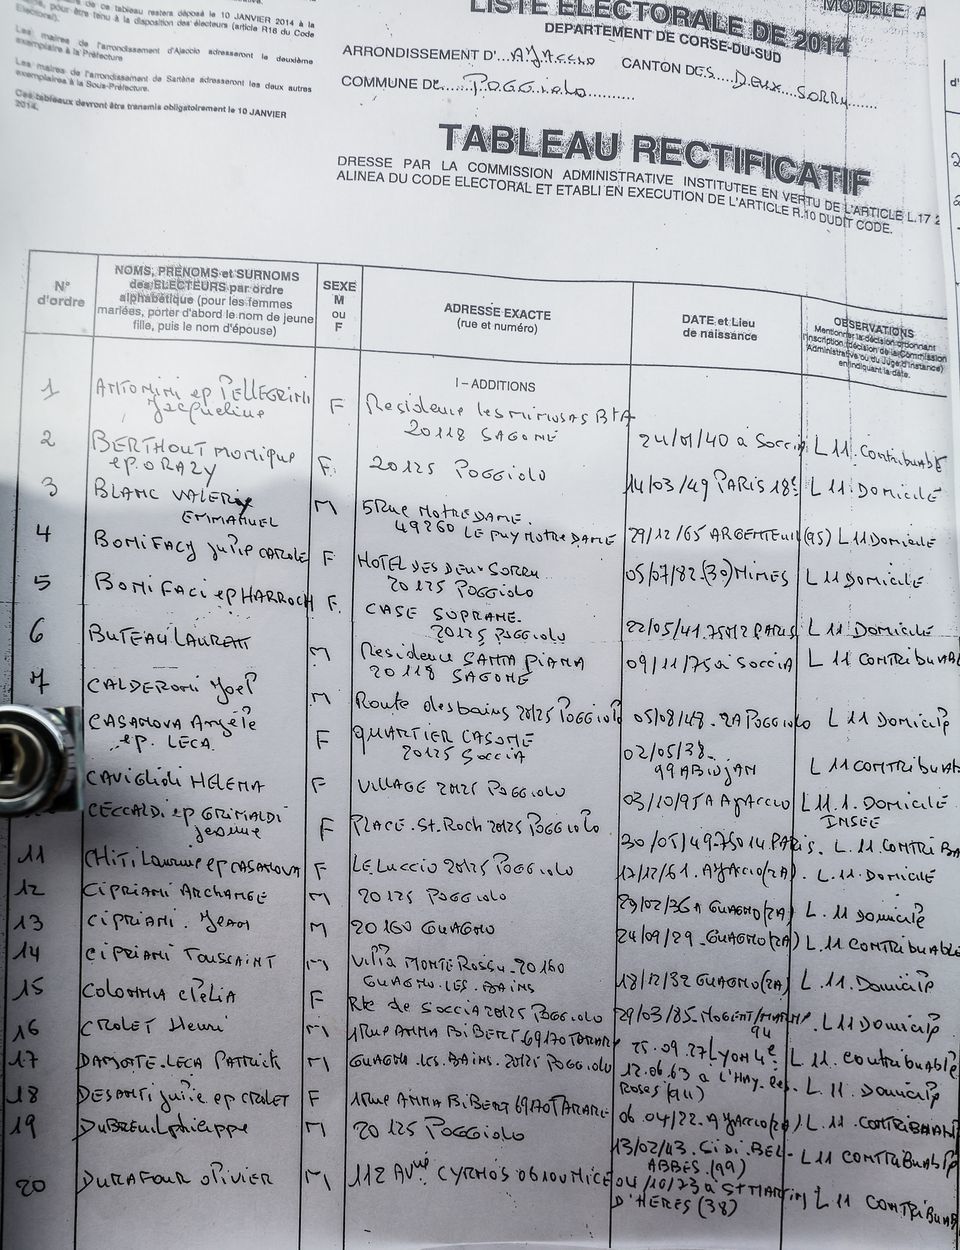 de ce tableau restera déposé le 10 JANVIER 2014 à la
pour être tenu à la disposition des électeurs (article R16 du Code
Electoral).
Les maires de l'arrondissement d'Ajaccio adresseront le deuxième
exemplaire à la Préfecture
Les maires de l'arrondissement de Sartène adresseront les deux autres
exemplaires à la Sous-Préfecture.
Ces tableaux devront être transmis obligatoirement le 10 JANVIER
2014.
MODELE A
LISTE ELECTORALE DE 2014
DEPARTEMENT DE CORSE-DU-SUD
ARRONDISSEMENT D'...AJACCIO CANTON DES...DEUX...SORRU......
COMMUNE DE...POGGIOLO..........
TABLEAU RECTIFICATIF
DRESSE PAR LA COMMISSION ADMINISTRATIVE INSTITUTEE EN VERTU DE L'ARTICLE L.17 2
ALINEA DU CODE ELECTORAL ET ETABLI EN EXECUTION DE L'ARTICLE R.10 DUDIT CODE.
N° d'ordre
NOMS, PRENOMS et SURNOMS
des ELECTEURS par ordre
alphabétique (pour les femmes
mariées, porter d'abord le nom de jeune
fille, puis le nom d'épouse)
SEXE
M
ou
F
ADRESSE EXACTE
(rue et numéro)
DATE et Lieu
de naissance
OBSERVATIONS
Mentionner la décision ordonnant
l'inscription (décision de la Commission
Administrative ou du Juge d'instance)
en indiquant la date.
I - ADDITIONS
1 ANTONINI ep PELLEGRINI Jacqueline F Residence les MIMOSAS BtA 20118 SAGONE 24/01/40 à Soccia L 11. Contribuable
2 BERTHOUT Monique ep. ORAZY F. 20125 POGGIOLO 14/03/49 PARIS 18e L 11. DOMICILE
3 BLANC VALERY EMMANUEL M 5 Rue NOTRE DAME. 49260 LE PUY NOTRE DAME 29/12/65 ARGENTEUIL (95) L 11 DOMICILE
4 BONIFACY Julie CAROLE F HOTEL DES DEUX SORRU 20125 POGGIOLO 05/07/82 (30) NIMES L 11 DOMICILE
5 BONIFACI ep HARROCH F. CASE SOPRANE. 20125 POGGIOLO 22/05/41. 75012 PARIS L 11 DOMICILE
6 BUTEAU LAURENT M Residence SANTA PIANA 20118 SAGONE 09/11/75 à SOCCIA L 11 CONTRIBUABL
7 CALDERONI Noel M Route des bains 20125 POGGIOLO 05/08/48. 2A POGGIOLO L 11 DOMICILE
CASANOVA Angèle ep. LECA. F QUARTIER CASONE 20125 SOCCIA 02/05/38. 99 ABIDJAN L 11 CONTRIBUAB
CAVIGLIOLI HELENA F VILLAGE 20125 POGGIOLO 03/10/95 A AJACCIO L 11.1. DOMICILE INSEE
CECCALDI ep GRIMALDI F PLACE. St. Roch 20125 POGGIOLO 30/05/49. 75014 PARIS. L. 11. CONTRIBA
11 CHITI Laurine ep CASANOVA F LE LUCCIO 20125 POGGIOLO 12/12/61. AJACCIO (2A). L. 11. DOMICILE
12 CIPRIANI ARCHANGE M 20125 POGGIOLO 29/02/36 A GUAGNO (2A) L. 11 DOMICILE
13 CIPRIANI. Jean M 20160 GUAGNO 24/09/29. GUAGNO (2A) L. 11 CONTRIBUABLE
14 CIPRIANI TOUSSAINT M Villa MONTE Rossu. 20160 GUAGNO. LES. BAINS 18/12/32 GUAGNO (2A) L. 11. DOMICILE
15 COLONNA cLELIA F Rte de soccia 20125 POGGIOLO 29/03/85. NOGENT/MARNE 94 L 11 DOMICILE
16 CROLET Henri M 1 Rue ANNA BIBERT 69170 TARARE 25.09.27 LYON 4e L 11. contribuable
17 DAMOTTE. LECA PATRICK M GUAGNO. LES. BAINS. 20125 POGGIOLO 12.06.63 à L'HAY. les. ROSES (94) L. 11. DOMICILE
18 DESANTI Julie ep CROLET F 1 Rue ANNA BIBERT 69170 TARARE 06.04/22. AJACCIO (2A) L. 11. CONTRIBUAB
19 DUBREUIL philippe M 20125 POGGIOLO 13/02/43. SIDI. BEL- ABBES. (99) L 11 CONTRIBUABLE
20 DURAFOUR OLIVIER M 112 Avue CYRNOS 06100 NICE 04/10/73 à St MARTIN D'HERES (38) L 11 CONTRIBUAB